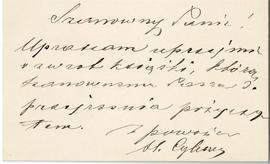 Szanowny Panie!
Upraszam uprzejmie
o zwrot książki, którą
szanownemu Panu do
przejrzenia pożyczy-
łem.
Z poważa